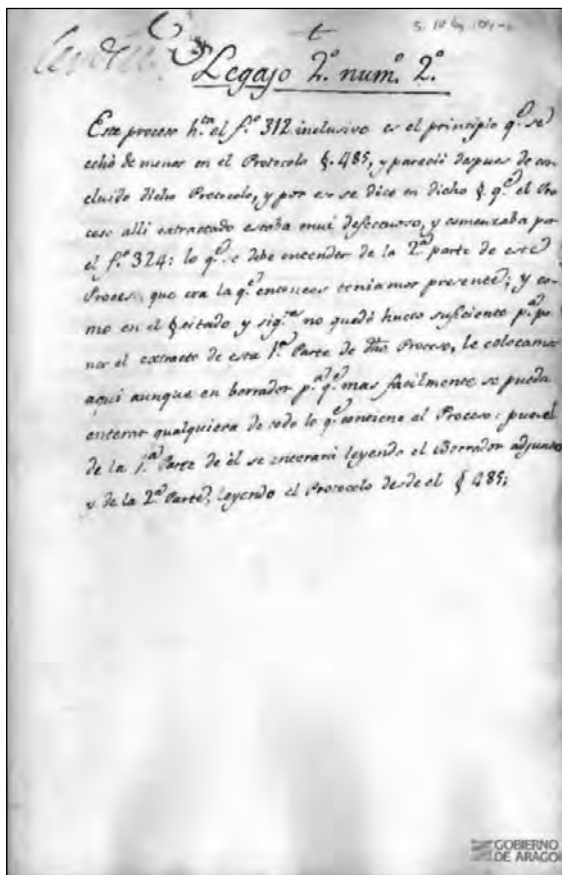 Legajo 2.º num.º 2.º
Este proceso h.ta el f.º 312 inclusive es el principio q.e se
echó de menos en el Protocolo §. 485, y pareció despues de con-
cluido dicho Protocolo, y por eso se dice en dicho §. q.e el Pro-
ceso alli extractado estaba mui defectuoso, y comenzaba por
el f.º 324: lo q.e se debe entender de la 2.ª parte de este
Proceso que era la q.e entonces teniamos presente; y co-
mo en el § citado y sig.tes no quedó hueco suficiente p.ª po-
ner el extracto de esta 1.ª Parte de dho Proceso, le colocamos
aqui aunque en borrador p.ª q.e mas facilmente se pueda
enterar qualquiera de todo lo q.e contiene el Proceso: pues
de la 1.ª Parte de él se enterará leyendo el Borrador adjunto
y de la 2.ª Parte, leyendo el Protocolo desde el § 485;
GOBIERNO
DE ARAGO